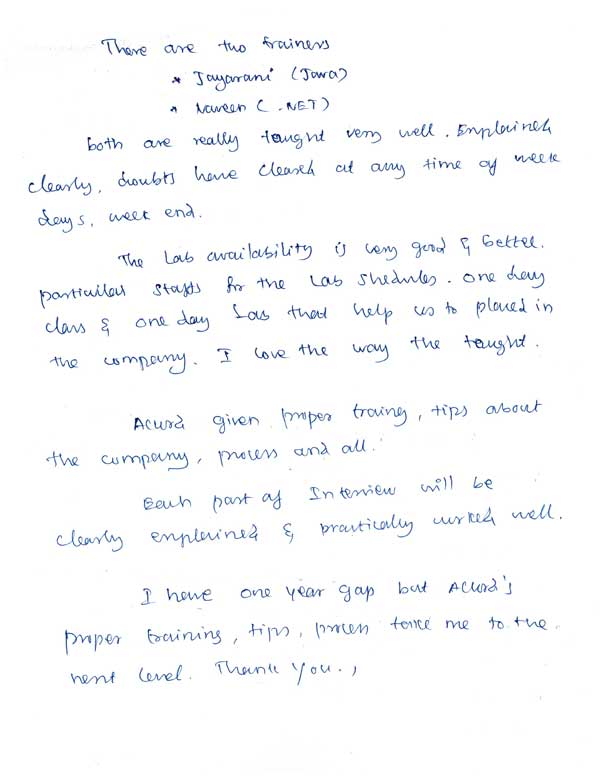 There are two trainers
* Jayarani (Java)
* Naveen (.NET)
both are really taught very well. Explained
clearly, doubts have cleared at any time of week
days, week end.
The Lab availability is very good & better.
particular staffs for the Lab shedules. one day
class & one day Lab that help us to placed in
the company. I love the way the taught.
Acura given proper traing, tips about
the company, process and all.
Each part of Interview will be
clearly explained & practically worked well.
I have one year gap but Acura's
proper training, tips, process take me to the
next level. Thank you.,